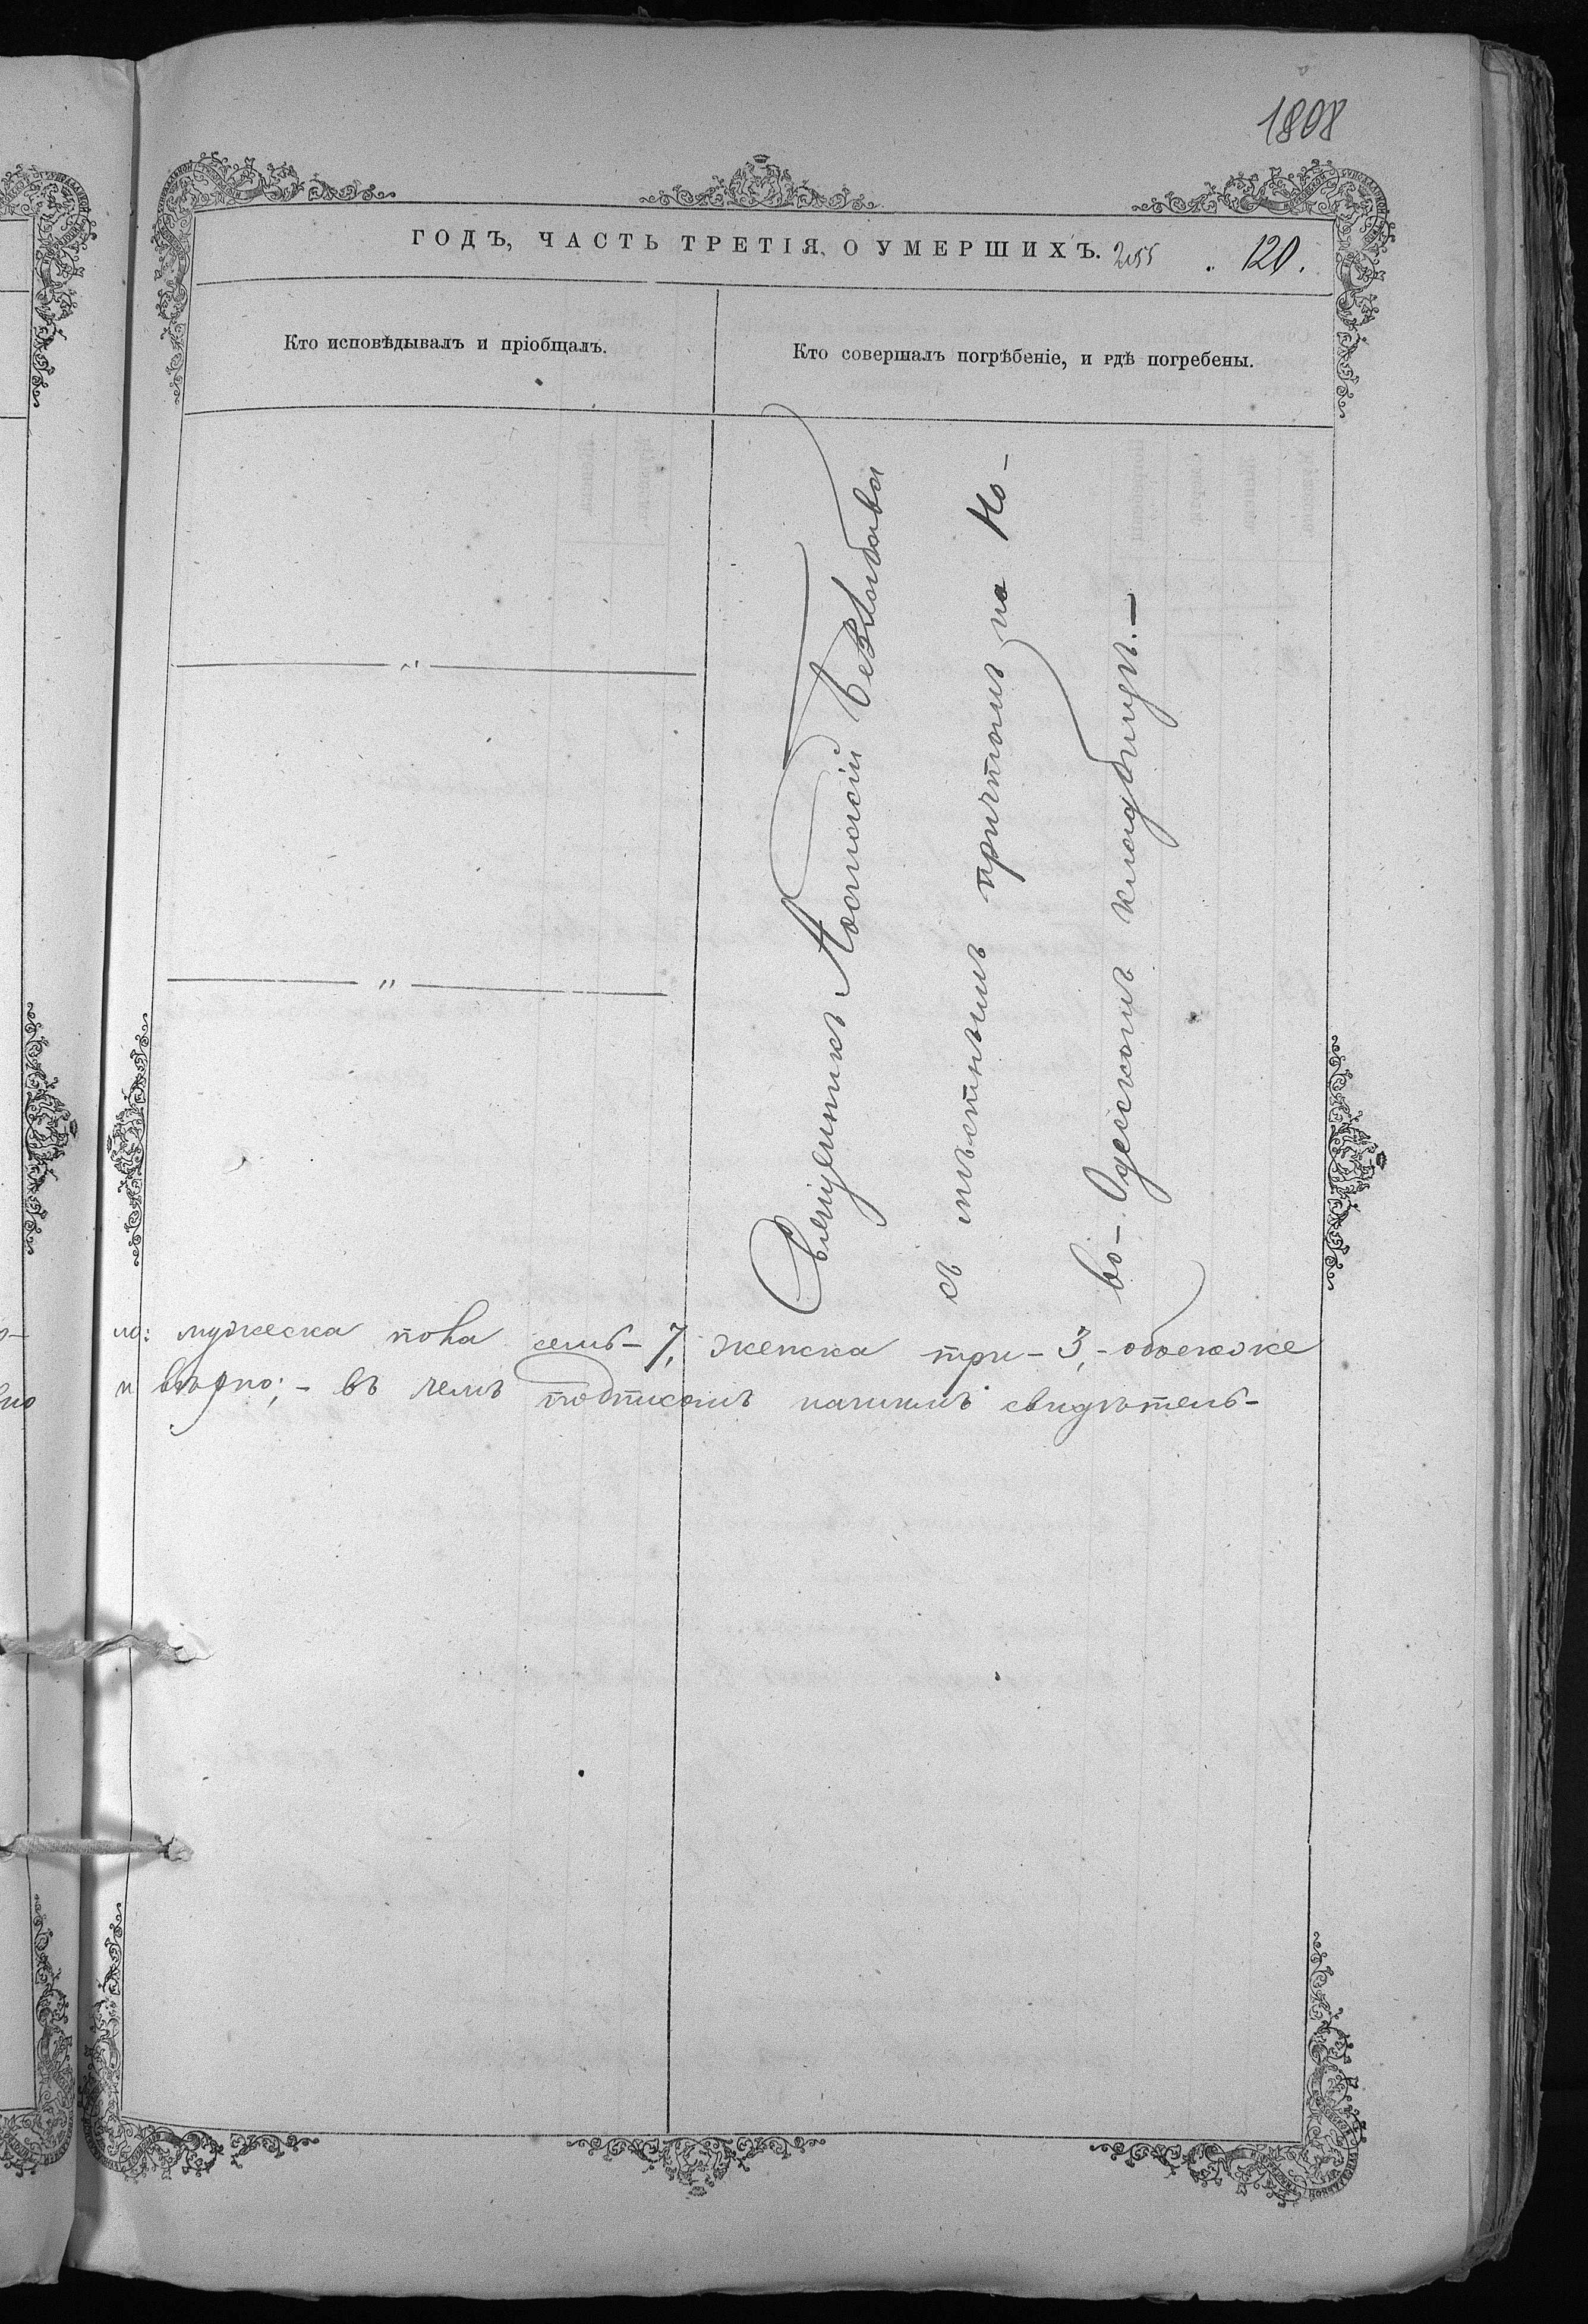 1808
ГОДЪ, ЧАСТЬ ТРЕТІЯ, О УМЕРШИХЪ. 255 120.
Кто исповѣдывалъ и пріобщалъ.
Кто совершалъ погрѣбеніе, и гдѣ погребены.
Священникъ
съ мѣстнымъ причтомъ на Но-
во-Одесскомъ кладбищѣ.-
ло: мужеска пола семь-7, женска три-3,-обоегоже
и вѣрно;- въ чемъ подписомъ нашимъ свидѣтель-